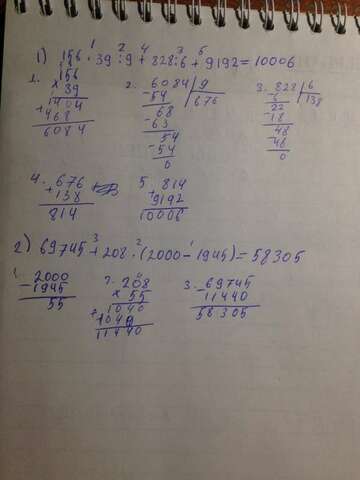 1) 156 · 39 : 9 + 828 : 6 + 9192 = 10006
1 2 4 3 5
1. 156
× 39
1404
+ 468
6084
2. 6084 | 9
- 54 676
68
- 63
54
- 54
0
3. 828 | 6
- 6 138
22
- 18
48
- 48
0
4. 676
+ 138
814
5 814
+ 9192
10006
2) 69745 + 208 · (2000 - 1945) = 58305
3 2 1
1. 2000
- 1945
55
2. 208
× 55
1040
+ 1040
11440
3. - 69745
11440
58305